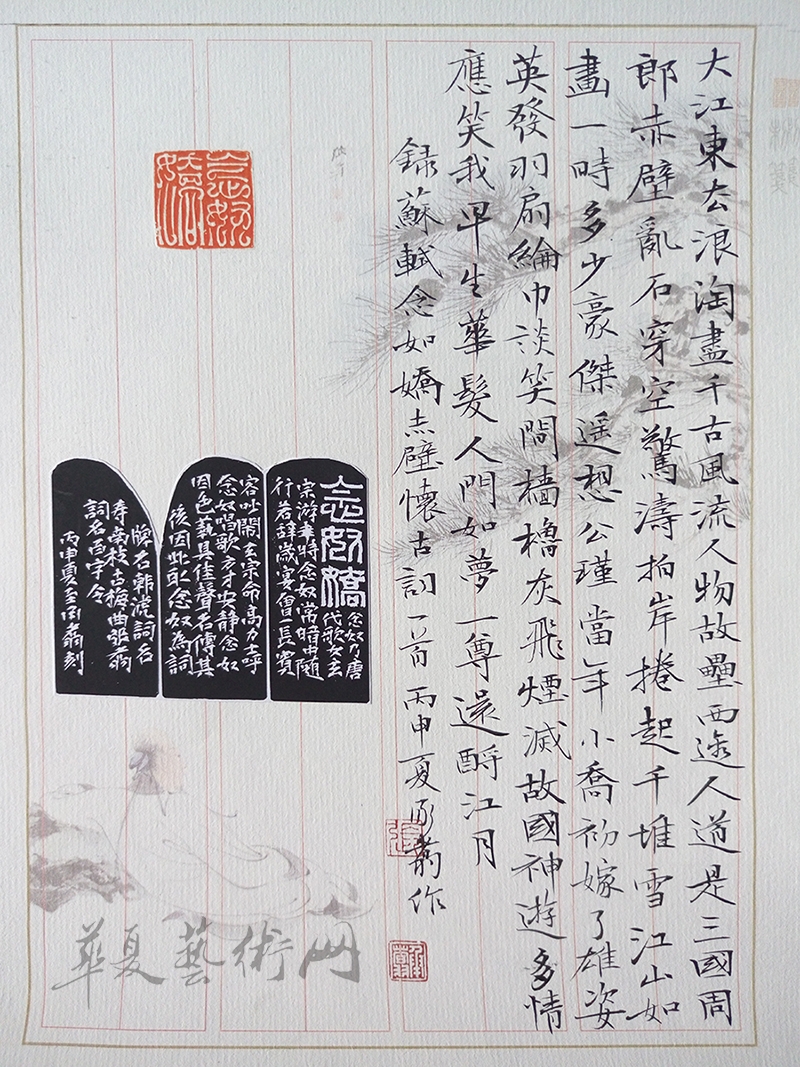 大江東去浪淘盡千古風流人物故壘西邊人道是三國周
郎赤壁亂石穿空驚濤拍岸捲起千堆雪江山如
畫一時多少豪傑遥想公瑾當年小喬初嫁了雄姿
英發羽扇綸巾談笑間檣櫓灰飛煙滅故國神遊多情
應笑我早生華髮人間如夢一尊還酹江月
録蘇軾念如嬌赤壁懷古詞一首丙申夏翁作
念奴嬌
念奴嬌
念奴乃唐
代歌女玄
宗游幸時念奴常暗中隨
行若辭歲宴會一長賓
客吵鬧玄宗命高力士呼
念奴唱歌方才安静念奴
因色藝具佳聲名傳其
後因此取念奴為詞
牌名韩淲詞名
壽南枝古梅曲張翥
詞名百字令
丙申夏至翁刻
張
華夏藝術网